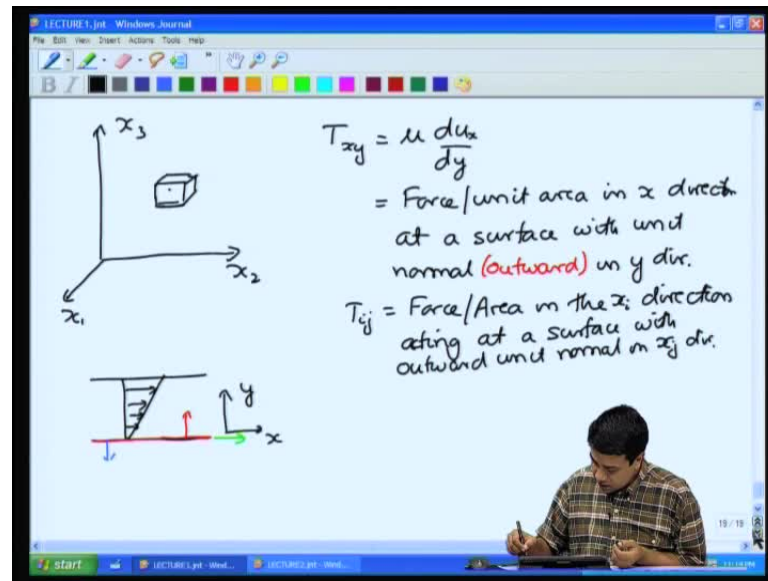 LECTURE1.jnt - Windows Journal
File Edit View Insert Actions Tools Help
B I
x₃
x₂
x₁
T_xy = μ du_x/dy
= Force/unit area in x direction
at a surface with unit
normal (outward) in y dir.
T_ij = Force/Area in the x_i direction
acting at a surface with
outward unit normal in x_j dir.
y
x
19 / 19
start
LECTURE1.jnt - Wind...
LECTURE2.jnt - Wind...